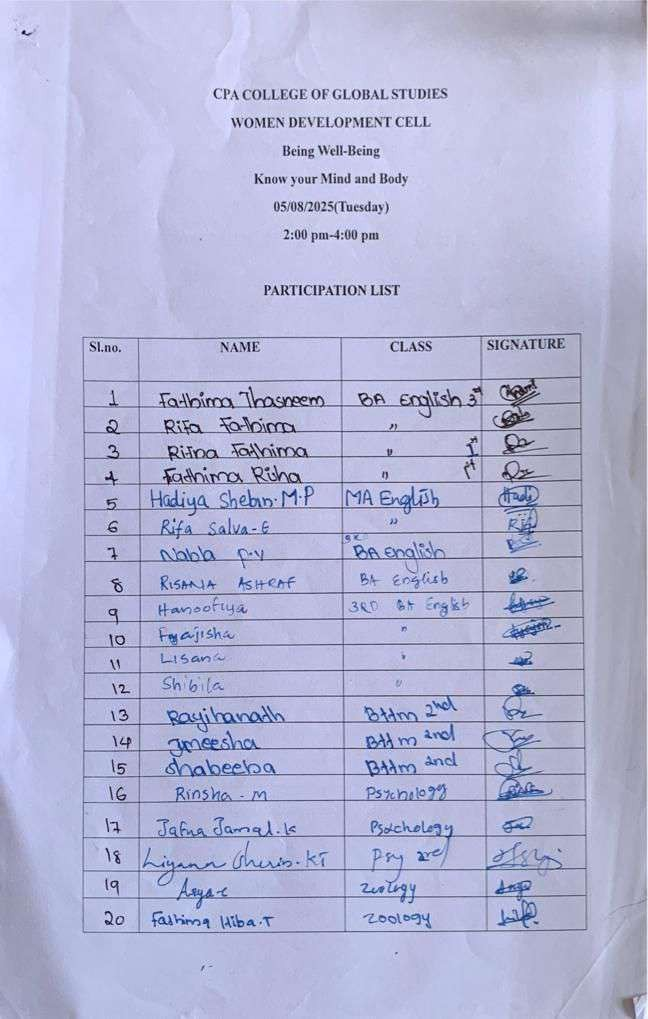 CPA COLLEGE OF GLOBAL STUDIES
WOMEN DEVELOPMENT CELL
Being Well-Being
Know your Mind and Body
05/08/2025(Tuesday)
2:00 pm-4:00 pm
PARTICIPATION LIST
Sl.no. NAME CLASS SIGNATURE
1 Fathima Thasneem BA English 3rd
2 Rifa Fathima "
3 Rifna Fathima " 1st
4 Fathima Risha " 1st
5 Hadiya Shebin.M.P MA English Hadi
6 Rifa Salva-E " Rif
7 Nabla P.V BA English
8 RISANA ASHRAF BA English
9 Hanoofiya 3RD BA English
10 Fajisha "
11 Lisana "
12 Shibila "
13 Rayihanath BTTM 2nd
14 Jmeesha BTTM 2nd
15 Shabeeba BTTM 2nd
16 Rinsha-M Psychology
17 Jafna Jamal.K Psychology
18 Liyana Sherin.KT Psy 2nd
19 Zoology
20 Fathima Hiba.T Zoology